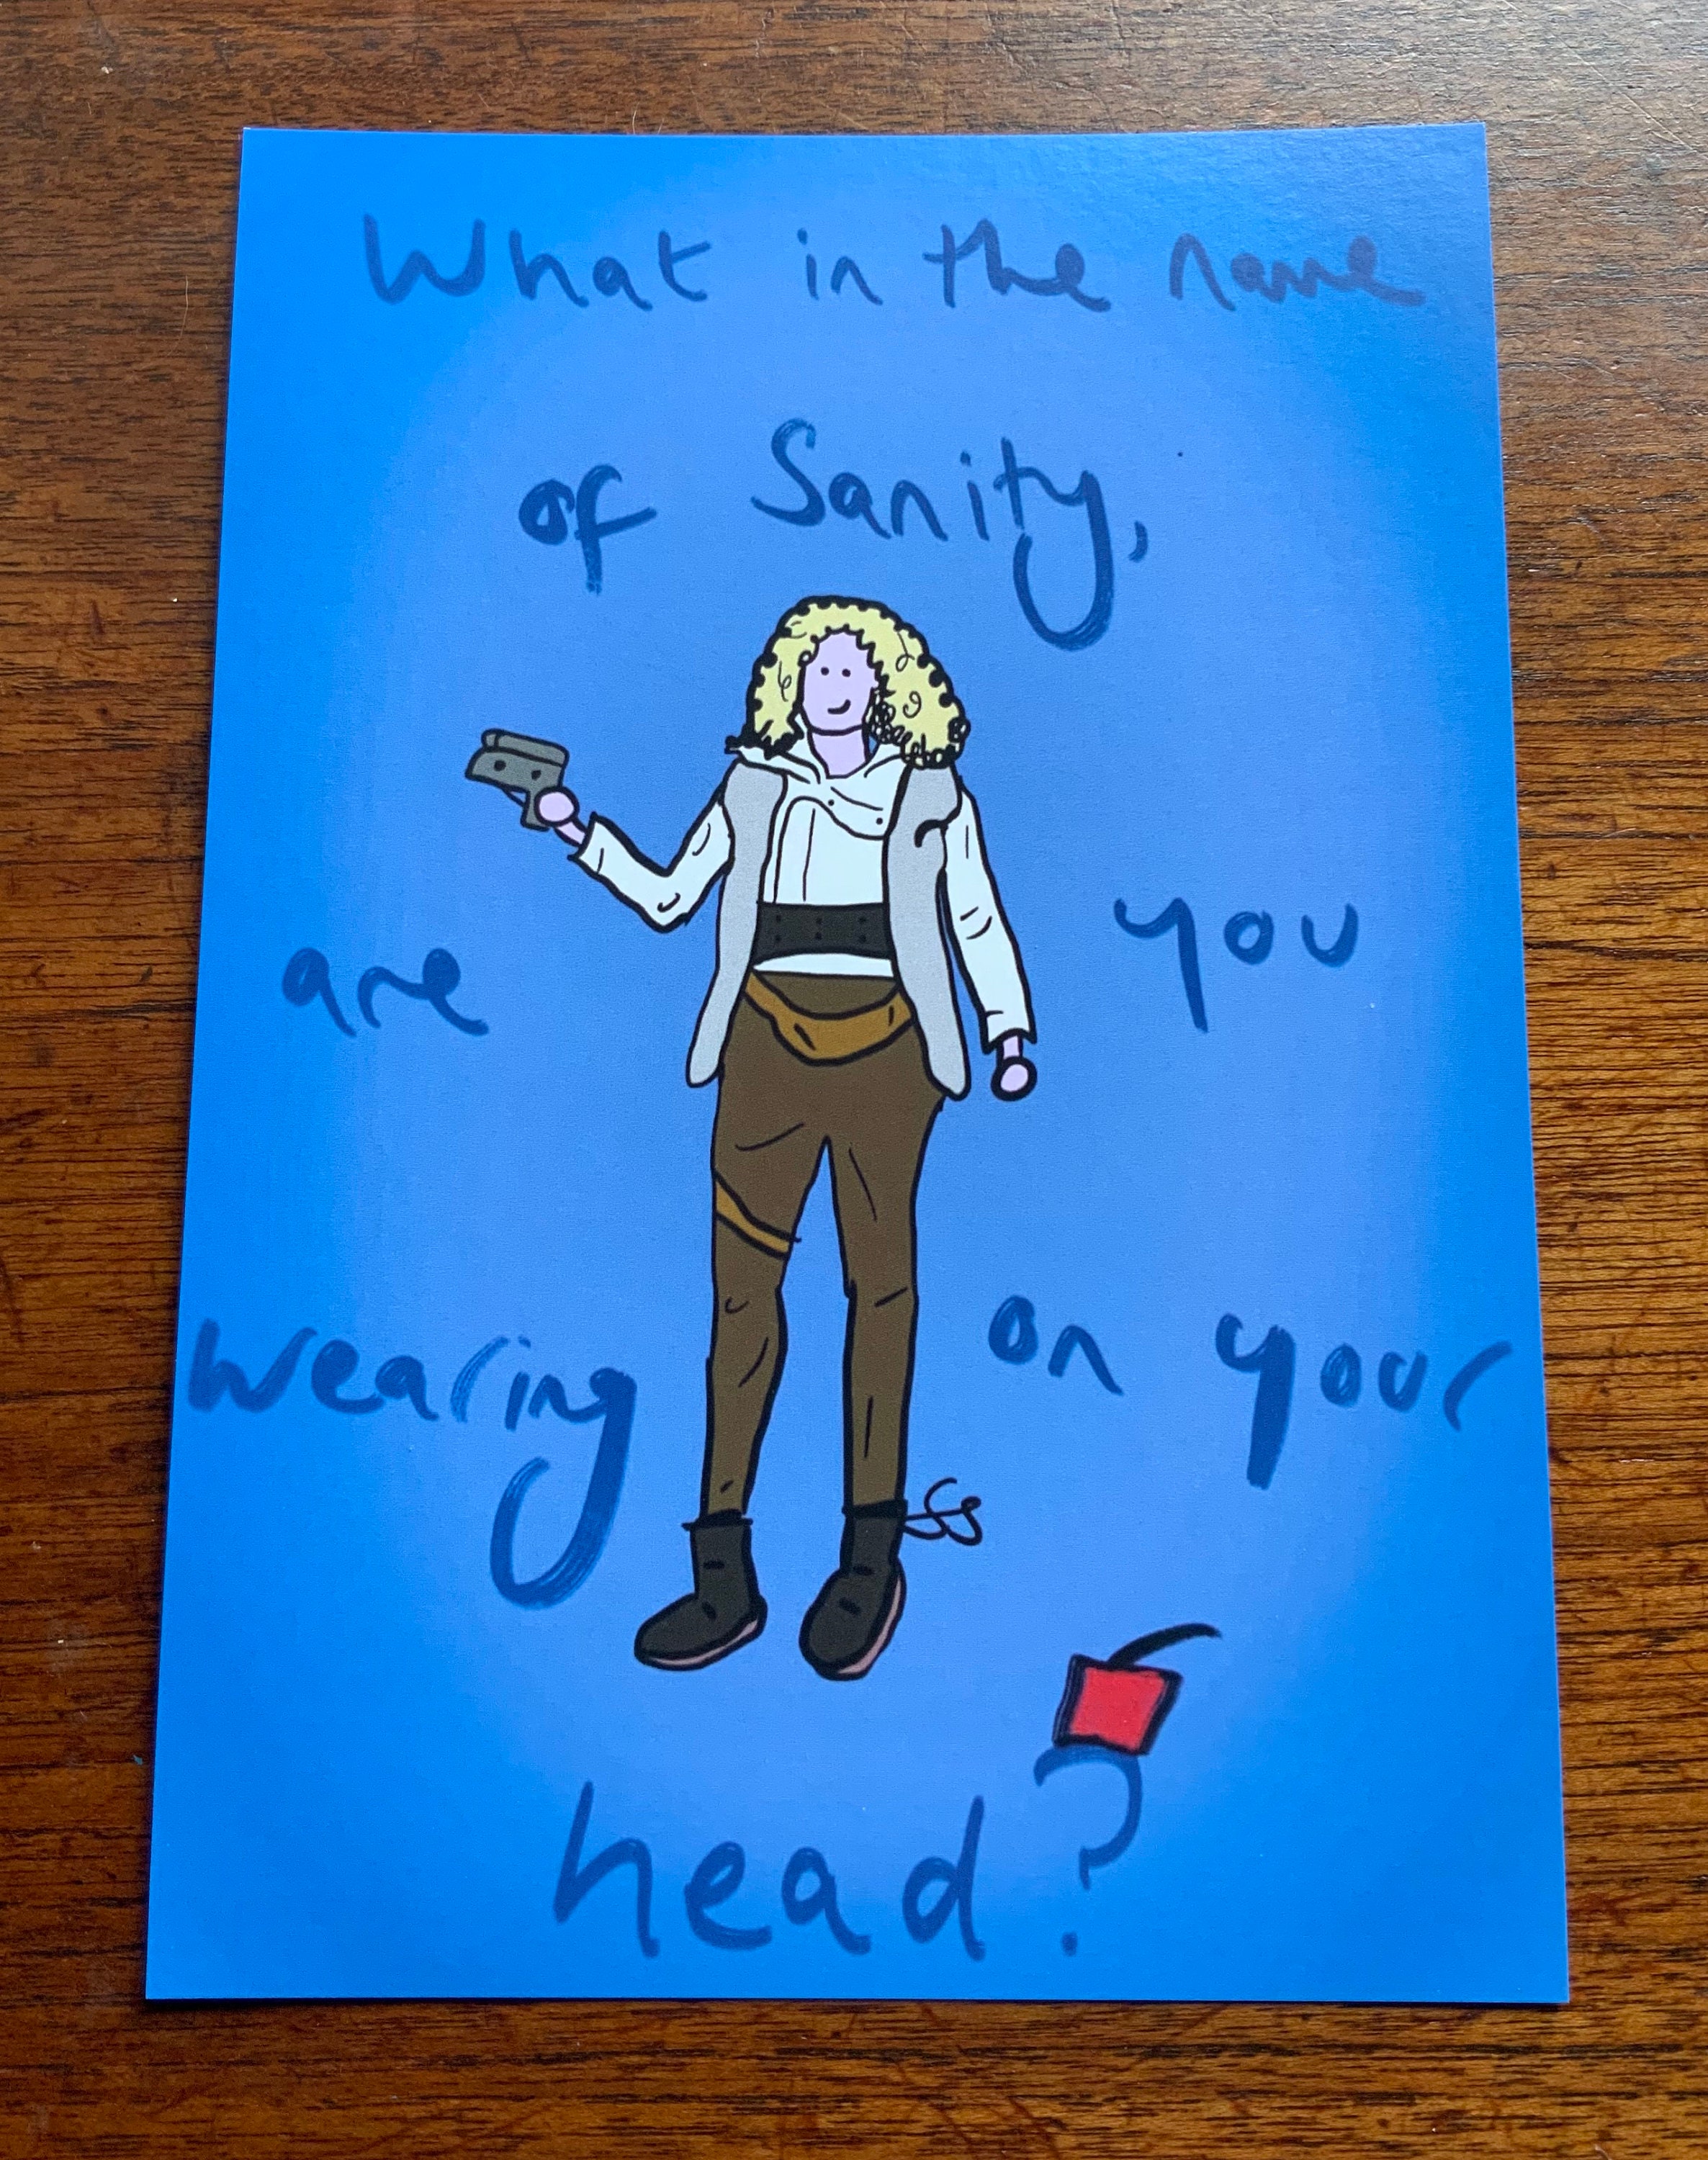 What in the name
of Sanity,
are you
wearing on your
head?